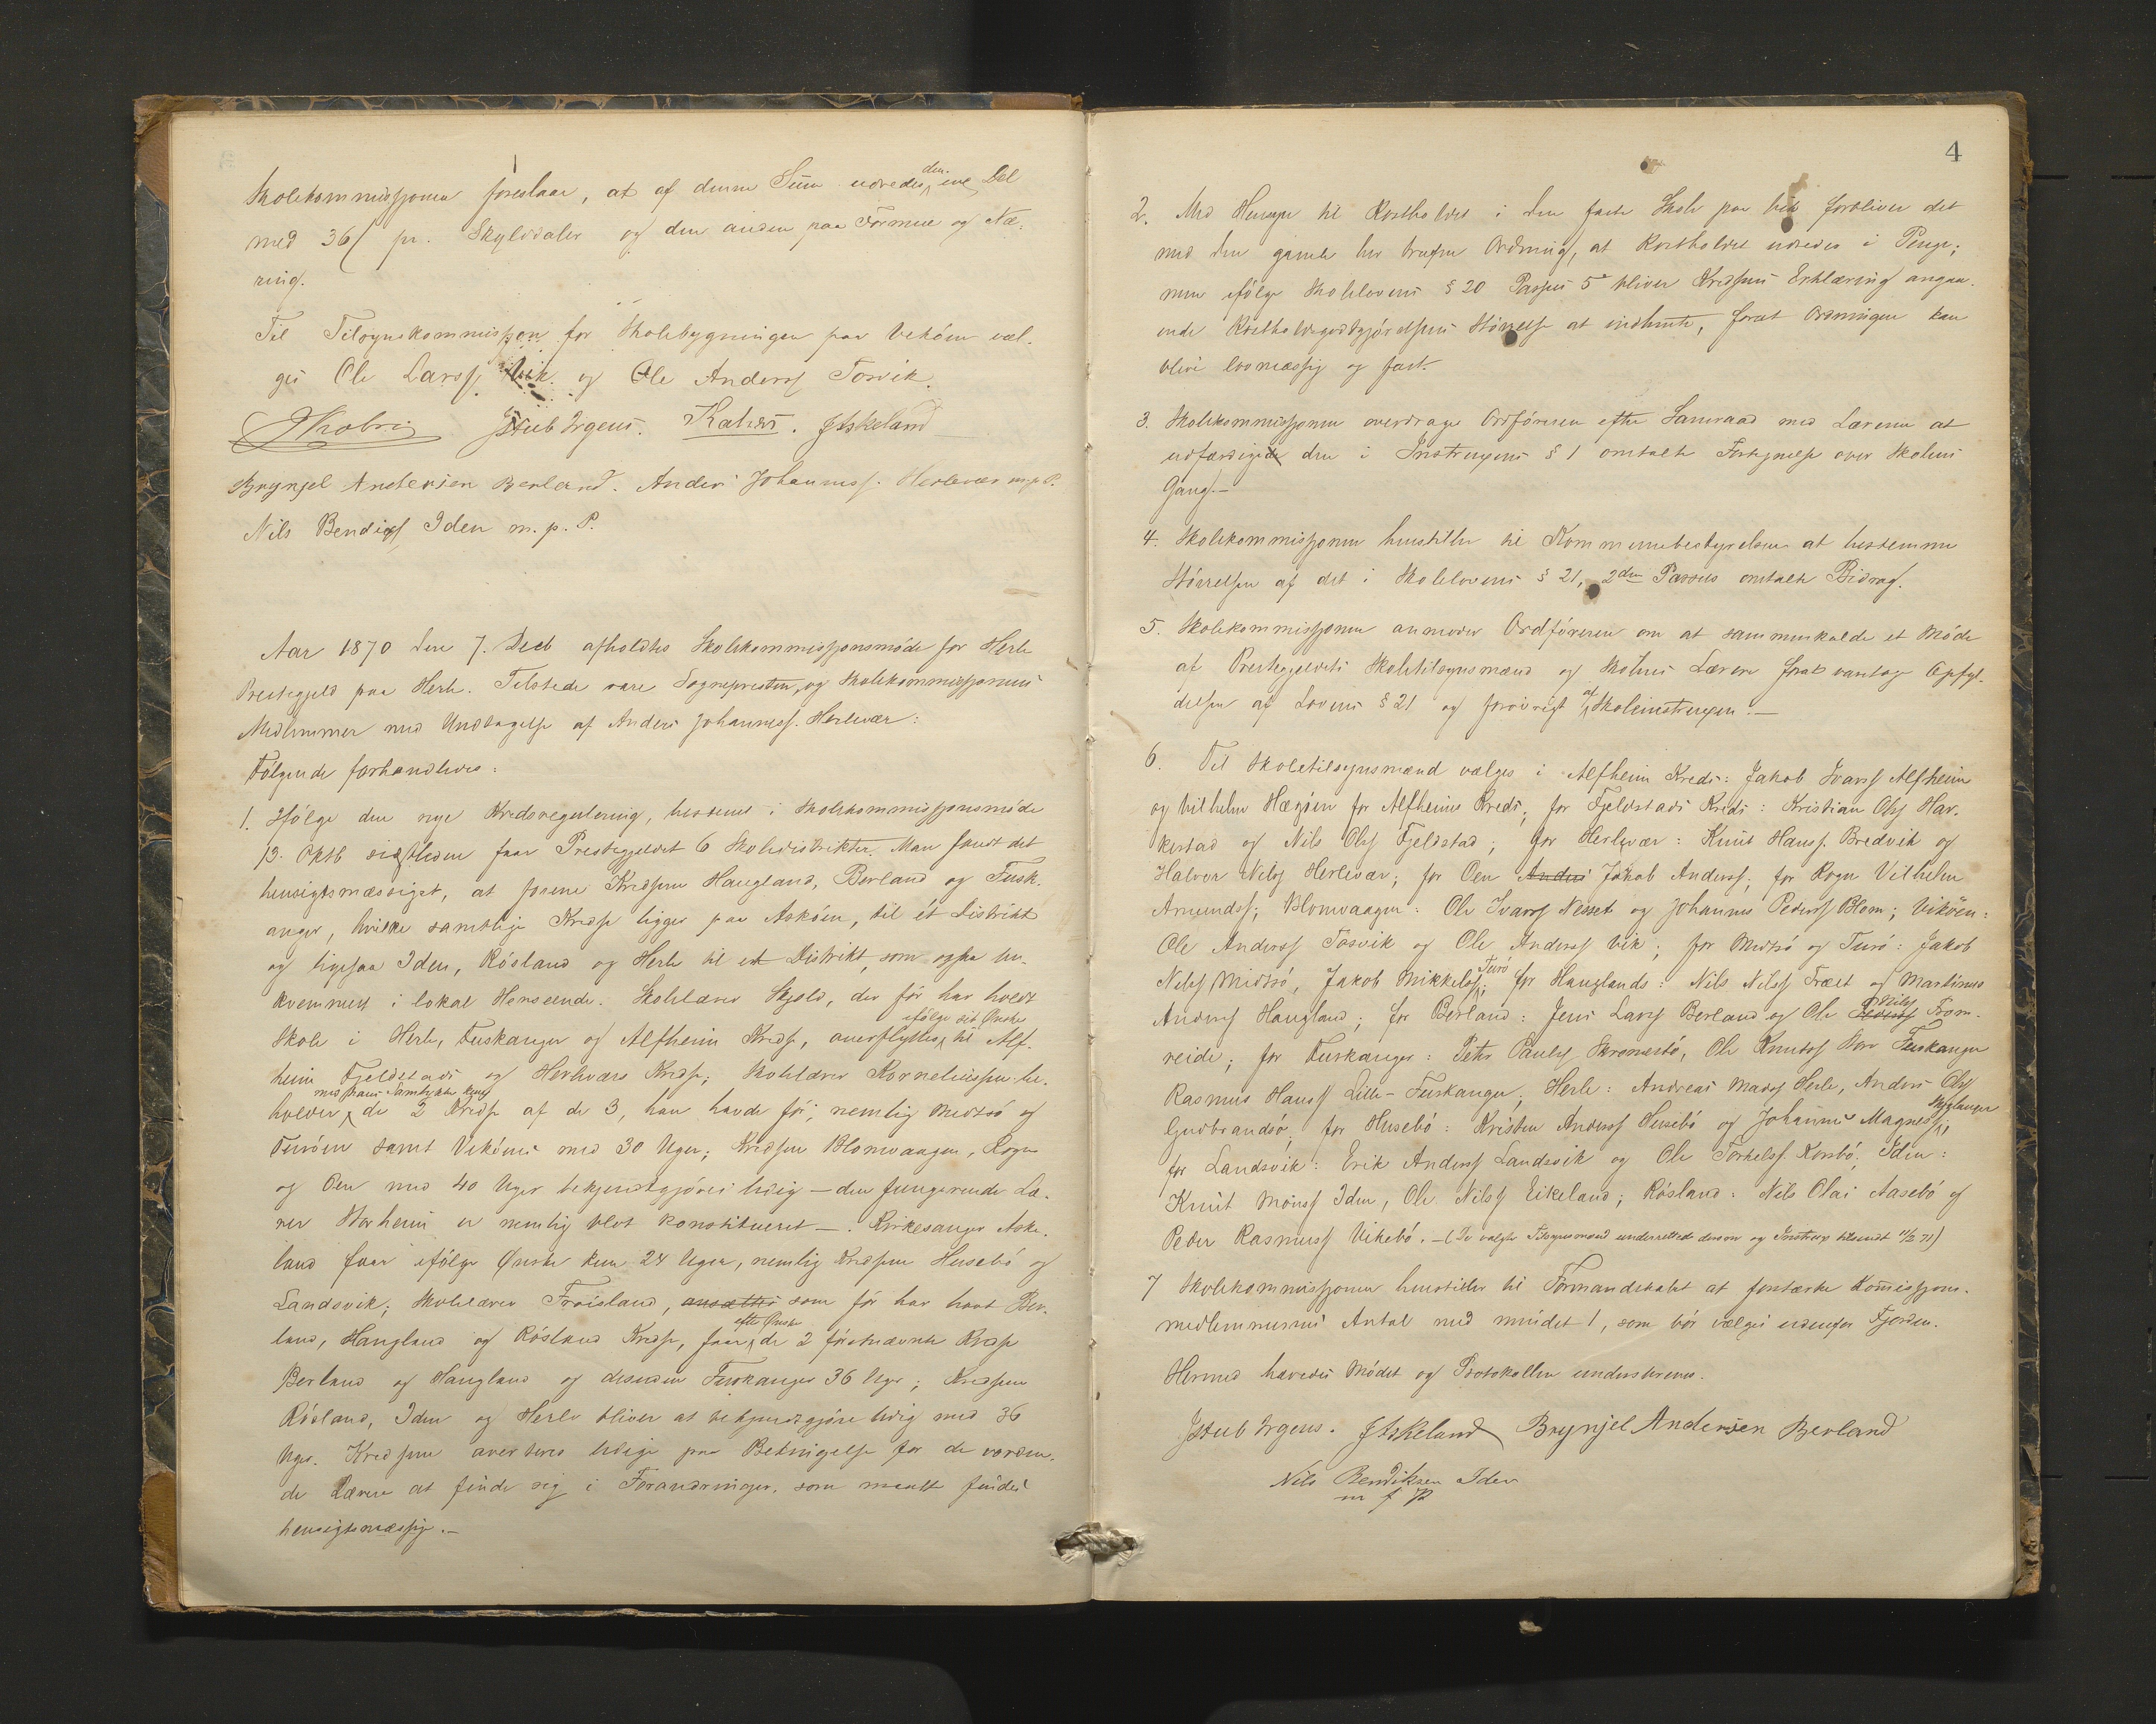 Skolekommissjonen foreslaar, at af denne Sum udredes den ene Del
med 36 ſ pr. Skylddaler og den anden paa Formue og Næ-
ring.
Til Tilsynskommission for Skolebygningen paa Vikøen væl-
ges Ole Larss. Vik og Ole Anderss Tosvik.
JStub Irgens. Kahrs. JAskeland
Brynjel Andersen Berland. Anders Johanness. Herlevær m.p.P.
Nils Bendixs Iden m. p. P.
Aar 1870 den 7. Decb afholdtes Skolekommissjonsmøde for Herlø
Prestegjeld paa Herlø. Tilstede vare Sognepresten, og Skolekommissjonens
Medlemmer med Undtagelse af Anders Johanness. Herlevær:
Følgende forhandledes:
1. Ifølge den nye Kredsregulering, bestemt i Skolekommissjonsmøde
13. Oktb sidstleden faar Prestegjeldet 6 Skoledistrikter. Man fandt det
hensigtsmæssigst, at forene Kredsene Haugland, Berland og Fusk-
anger, hvilke samtlige Kredse ligger paa Askøen, til ét Distrikt
og ligesaa Iden, Røsland og Herlø til et Distrikt, som ogsaa be-
kvemmest i lokal Henseende. Skolelærer Skjold, der før har holdt
Skole i Herlø, Fuskanger og Alfheim Kredse, overflyttes ifølge sit Ønske til Alf-
heim Fjeldstads og Herleværs Kredse; Skolelærer Korneliussen be-
holder med hans Samtykke kun de 2 Kredse af de 3, han havde før, nemlig Midtsø og
Turøen samt Vikøens med 30 Uger; Kredsene Blomvaagen, Rogn
og Oen med 40 Uger bekjendtgjøres ledig — den fungerende Læ-
rer Storheim er nemlig blot konstitueret —. Kirkesanger Aske-
land faar ifølge Ønske kun 24 Uger, nemlig Kredsene Husebø og
Landsvik; Skolelærer Frøisland, ansættes som før har havt Ber-
land, Haugland og Røsland Kredse, faar efter Ønske de 2 førstnævnte Kredse
Berland og Haugland og desuden Fuskanger 36 Uger; Kredsene
Røsland, Iden og Herlø bliver at bekjendtgjøre ledig med 36
Uger. Kredsene averteres ledige paa Betingelse for de vorden-
de Lærere at finde sig i Forandringer, som maatte findes
hensigtsmæssige.—
4
2. Med Hensyn til Kostholdet i den faste Skole paa Vik forbliver det
med den gamle her brugen Ordning, at Kostholdet udredes i Penge;
men ifølge Skolelovens § 20 Passus 5 bliver Kredsens Erklæring angaa-
ende Kostholdsgodtgjørelsens Størrelse at indhente, forat Ordningen kan
blive lovmæssig og fast.
3. Skolekommissjonen overdrager Ordføreren efter Samraad med Lærerne at
udfærdige den i Instruxens § 1 omtalte Fortegnelse over Skolens
Gang.—
4. Skolekommissjonen henstiller til Kommunebestyrelsen at bestemme
Størrelsen af det i Skolelovens § 21, 2den Passus omtalte Bidrag.
5. Skolekommissjonen anmoder Ordføreren om at sammenkalde et Møde
af Prestegjeldets Skoletilsynsmænd og Skolens Lærere forat varetage Opfyl-
delsen af Lovens § 21 og forøvrigt af Skoleinstruxen.—
6. Til Skoletilsynsmænd vælges i Alfheim Kreds: Jakob Ivarss Alfheim
og Vilhelm Hægøen for Alfheims Kreds; for Fjeldstads Kreds: Kristian Olss Har-
kestad og Nils Olss Fjeldstad; for Herlevær: Knut Hanss. Bredvik og
Halvor Nilss Herlevær; for Oen Anders Jakob Anderss; for Rogn Vilhelm
Amundss; Blomvaagen: Ole Ivarss Nesset og Johannes Pederss Blom; Vikøen:
Ole Anderss Tosvik og Ole Anderss Vik; for Midtsø og Turø: Jakob
Nilss Midtsø, Jakob Mikkelss Turø; for Hauglands: Nils Nilss Træet og Martinus
Anderss Haugland; for Berland: Jens Larss Berland og Ole Pederss Nilss From-
reide; for Fuskanger: Peter Paulss Skramestø, Ole Knutss Store Fuskanger
Rasmus Hanss Lille-Fuskanger, Herlø: Andreas Madss Herlø, Anders Olss
Gudbrandsø, for Husebø: Kristen Anderss Husebø og Johannes Magness Skoglanger;
for Landsvik: Erik Anderss Landsvik og Ole Torkelss. Korsbø; Iden:
Knut Monss Iden, Ole Nilss Eikeland; Røsland: Nils Olai Aasebø og
Peder Rasmuss Vikebø.—(De valgte Tilsynsmænd underrettede derom og Instrux tilsendt 11/2 71)
7 Skolekommissjonen henstiller til Formandskabet at forstærke Kom̅issjons-
medlemmernes Antal med mindst 1, som bør vælges udenfor Fjorden.
Hermed hævedes Mødet og Protokollen underskreves.
JStub Irgens. JAskeland Brynjel Andersen Berland
Nils Bendiksen Iden
m f P